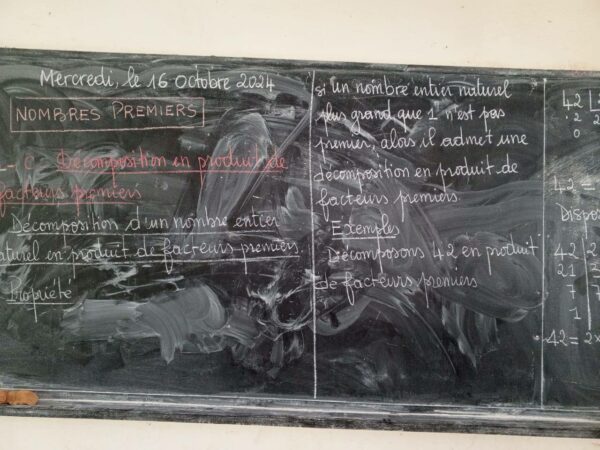 Mercredi, le 16 Octobre 2024
NOMBRES PREMIERS
- C Décomposition en produit de
facteurs premiers
Décomposition d'un nombre entier
naturel en produit de facteurs premiers
Propriété
si un nombre entier naturel
plus grand que 1 n'est pas
premier, alors il admet une
décomposition en produit de
facteurs premiers
Exemples
Décomposons 42 en produit
de facteurs premiers
42 | 2
2 2
0
42 =
Dispos
42 | 2
21
7 7
1
42 = 2x